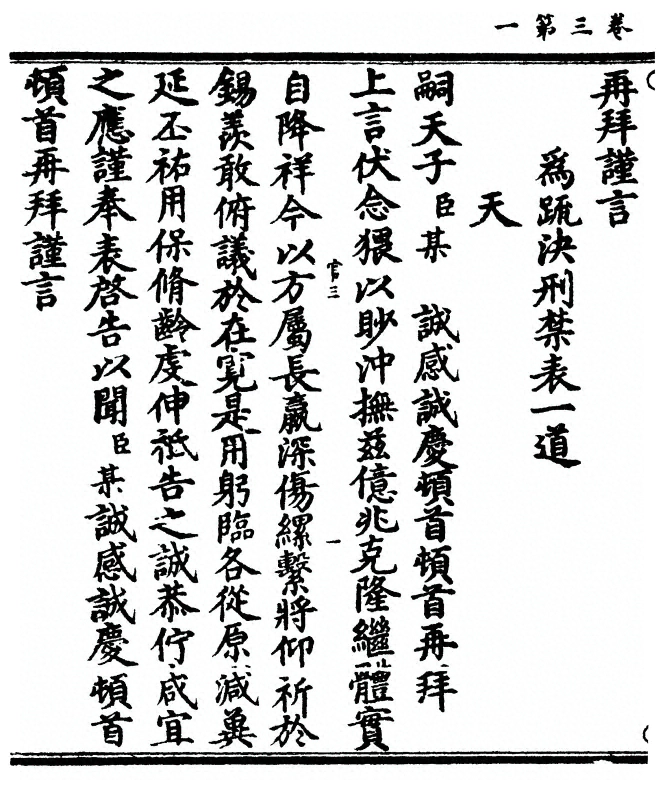 卷三第一
再拜謹言
為䟽決刑禁表一道
天
嗣天子臣某 誠感誠慶頓首頓首再拜
上言伏念猥以眇沖撫茲億兆克隆繼體實
官三 一
自降祥今以方屬長嬴深傷縲繫將仰祈於
錫羨敢俯議於在寬是用躬臨各從原減冀
延丕祐用保脩齡虔伸祗告之誠恭佇咸宜
之應謹奉表啓告以聞臣某誠感誠慶頓首
頓首再拜謹言